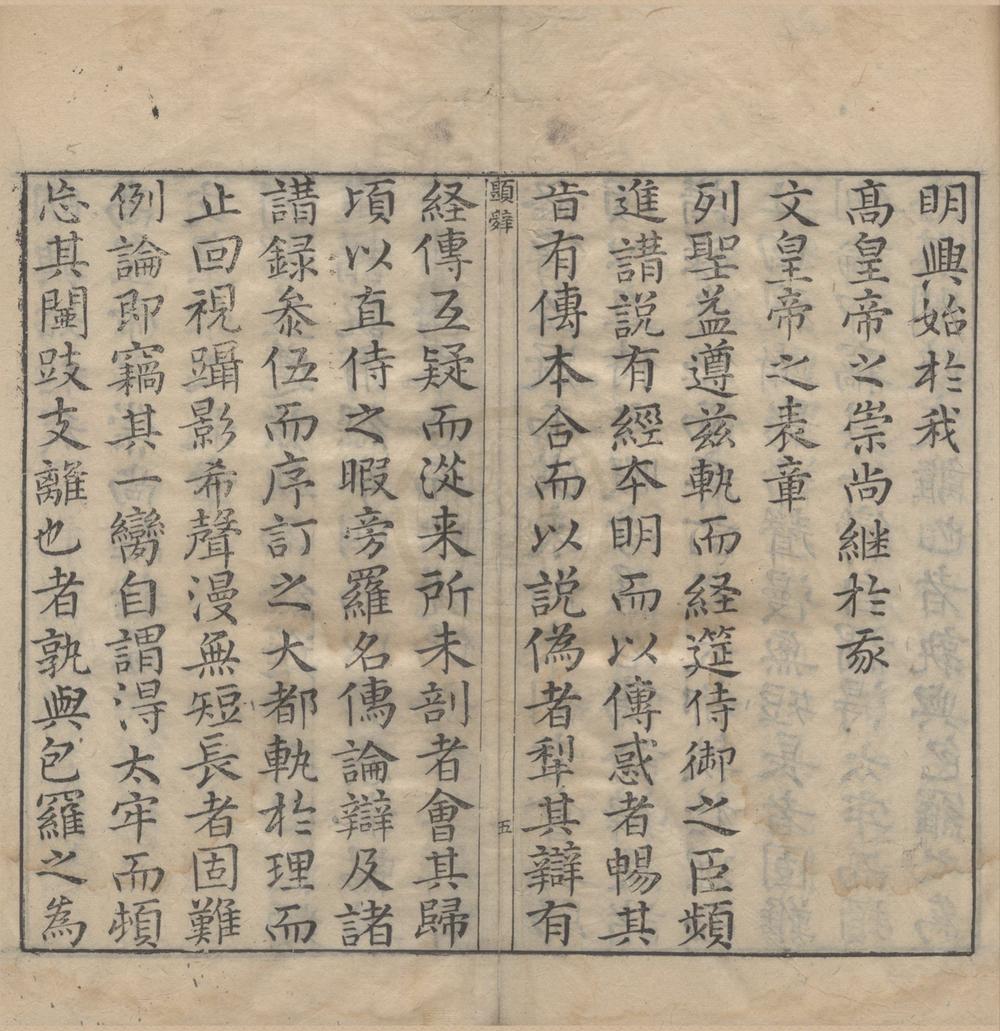 明興始於我
髙皇帝之崇尚継於我
文皇帝之表章
列聖益遵兹軌而経筵侍御之臣頻
進講説有經本明而以傳惑者暢其
旨有傳本合而以説偽者犁其辯有
顕辭
五
経傳互疑而從来所未剖者會其歸
頃以直侍之暇旁羅名儁論辯及諸
講録叅伍而序訂之大都軌於理而
止回視躡影希聲漫無短長者固難
例論即竊其一臠自謂淂太牢而頓
忘其閫歧支離也者孰與包羅之為